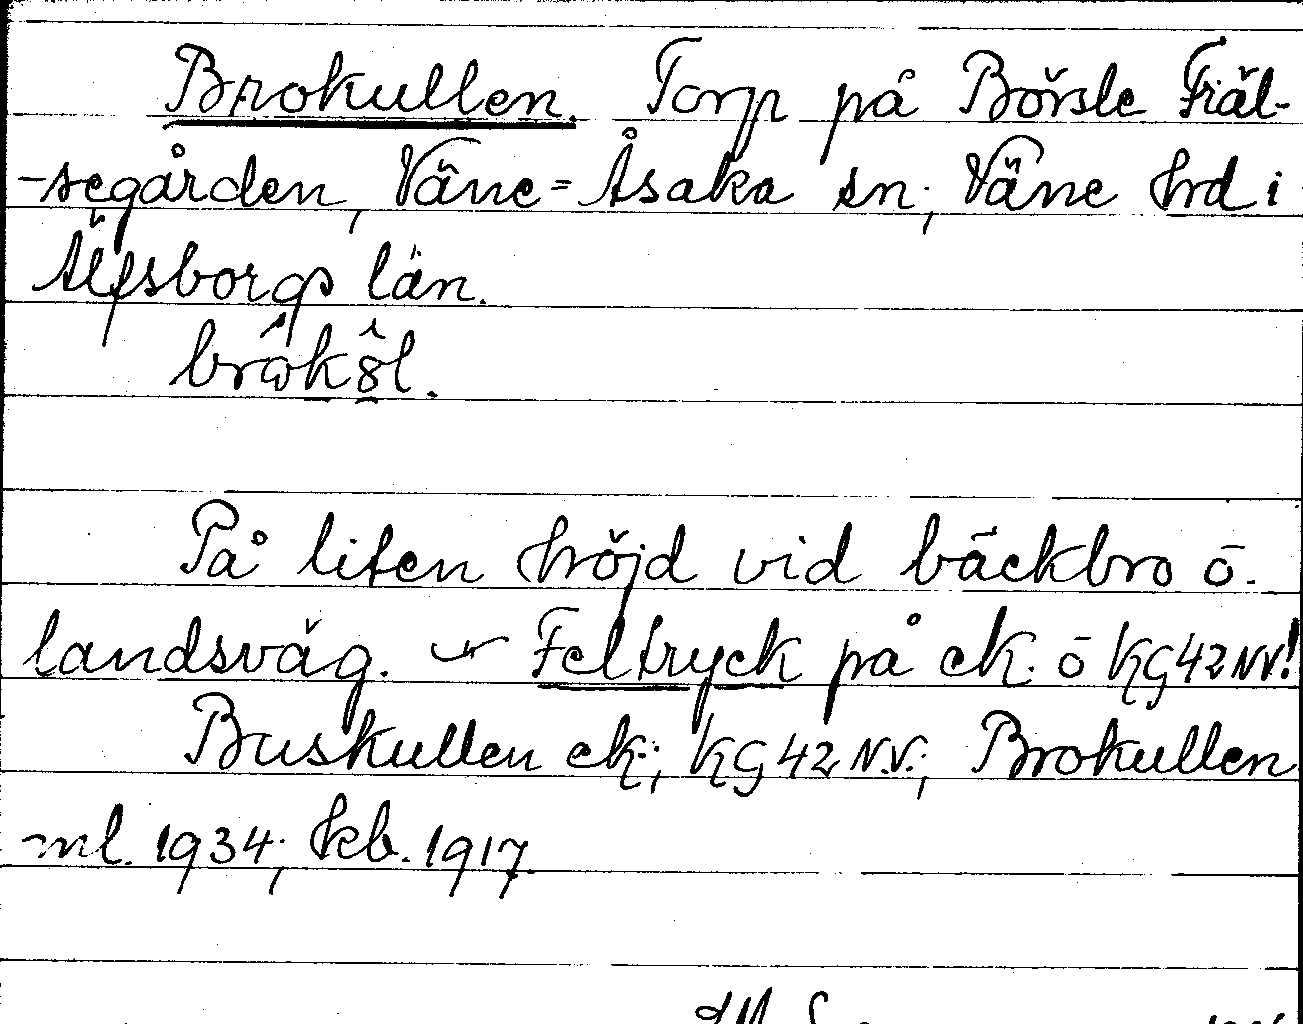 Brokullen. Torp på Börsle Fräl-
-segården, Väne=Åsaka sn; Väne hd i
Älfsborgs län.
På liten höjd vid bäckbro ö.
landsväg. Feltryck på ek. ö KG42NV!
Buskullen ek; KG42 N.V.; Brokullen
ml. 1934; kb. 1917